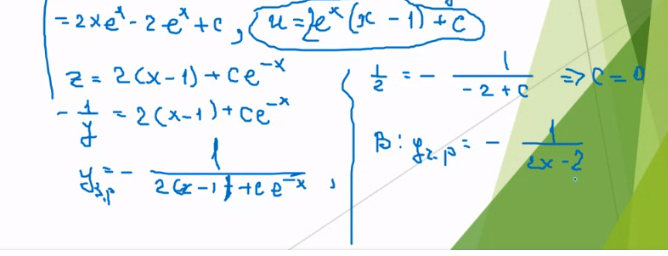 = 2xeˣ - 2eˣ + c, u = 2eˣ(x - 1) + c
z = 2(x-1) + ce⁻ˣ
- 1/y = 2(x-1) + ce⁻ˣ
yз,р = - 1/(2(x-1) + ce⁻ˣ),
1/2 = - 1/(-2+c) => c = 0
В: yz.р = - 1/(2x-2)